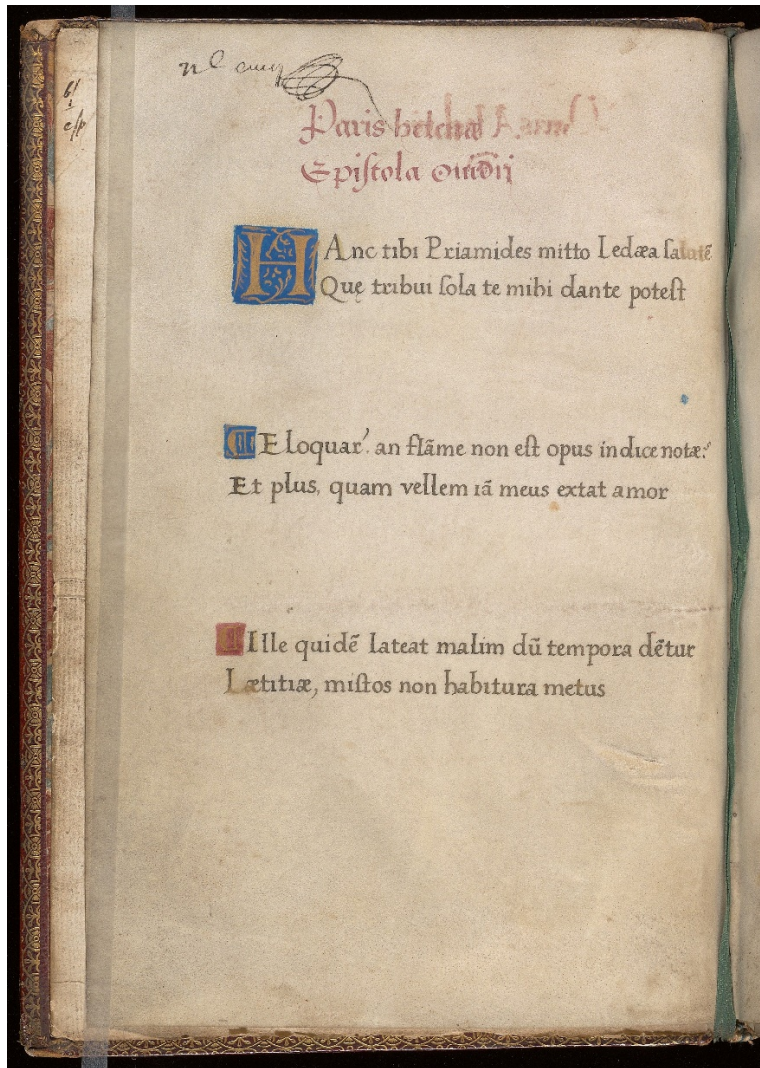 Paris helenæ
Epiſtola ouidij
HAnc tibi Priamides mitto Ledæa ſalutē
Quę tribui ſola te mihi dante poteſt
Eloquar? an flāme non eſt opus indice notæ?
Et plus, quam vellem iā meus extat amor
Ille quidē lateat malim dū tempora dētur
Lætitiæ, miſtos non habitura metus